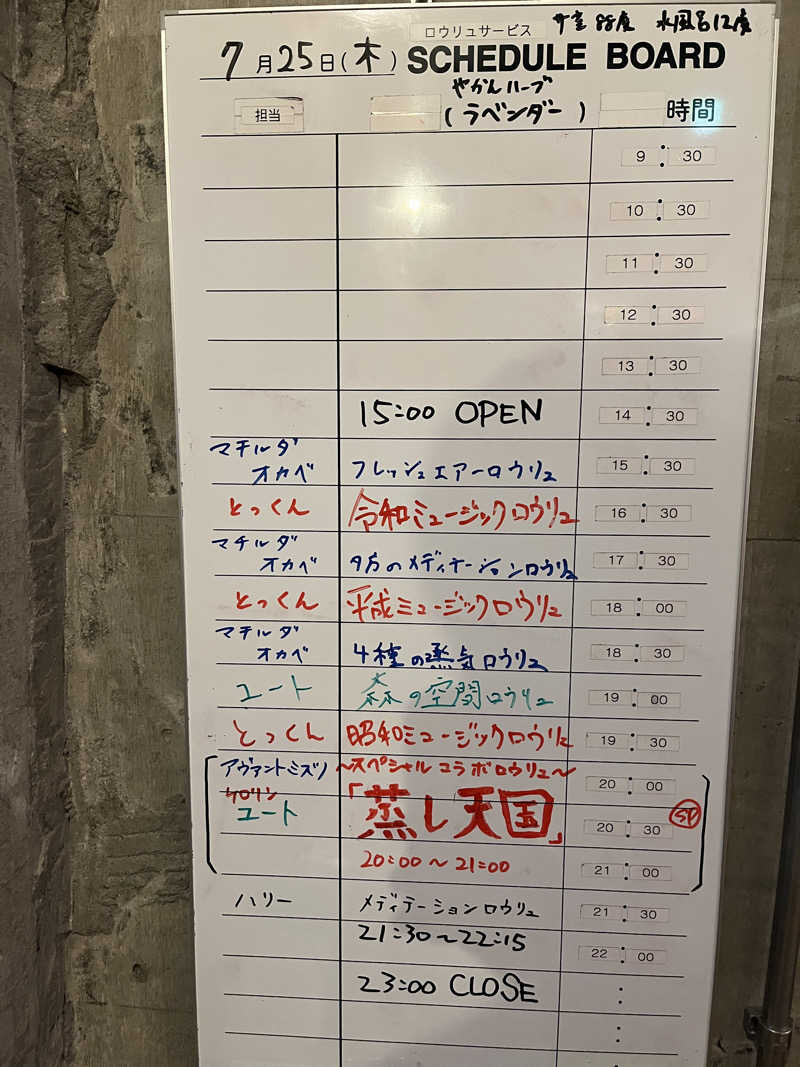 ロウリュサービス サ室 88度 水風呂12度
7月25日(木) SCHEDULE BOARD
やかんハーブ
担当 (ラベンダー) 時間
9:30
10:30
11:30
12:30
13:30
15:00 OPEN 14:30
マチルダ
オカベ フレッシュエアーロウリュ 15:30
とっくん 令和ミュージックロウリュ 16:30
マチルダ
オカベ 夕方のメディテーションロウリュ 17:30
とっくん 平成ミュージックロウリュ 18:00
マチルダ
オカベ 4種の蒸気ロウリュ 18:30
ユート 森の空間ロウリュ 19:00
とっくん 昭和ミュージックロウリュ 19:30
アヴァントミズノ 〜スペシャルコラボロウリュ〜 20:00
ケロリン
ユート 「蒸し天国」 20:30 SP
20:00〜21:00 21:00
ハリー メディテーションロウリュ 21:30
21:30〜22:15 22:00
23:00 CLOSE :
: